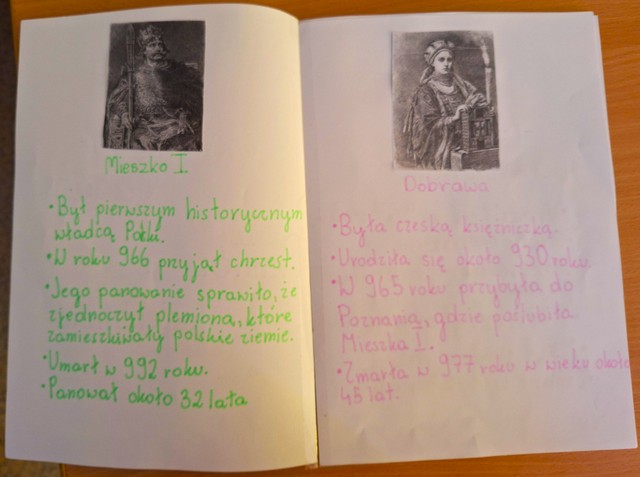 Mieszko I
• Był pierwszym historycznym
władcą Polski.
• W roku 966 przyjął chrzest.
• Jego panowanie sprawiło, że
zjednoczył plemiona, które
zamieszkiwały polskie ziemie.
• Umarł w 992 roku.
• Panował około 32 lata
Dobrawa
• Była czeską księżniczką.
• Urodziła się około 930 roku
• W 965 roku przybyła do
Poznania, gdzie poślubiła
Mieszka I.
• Zmarła w 977 roku w wieku około
45 lat.